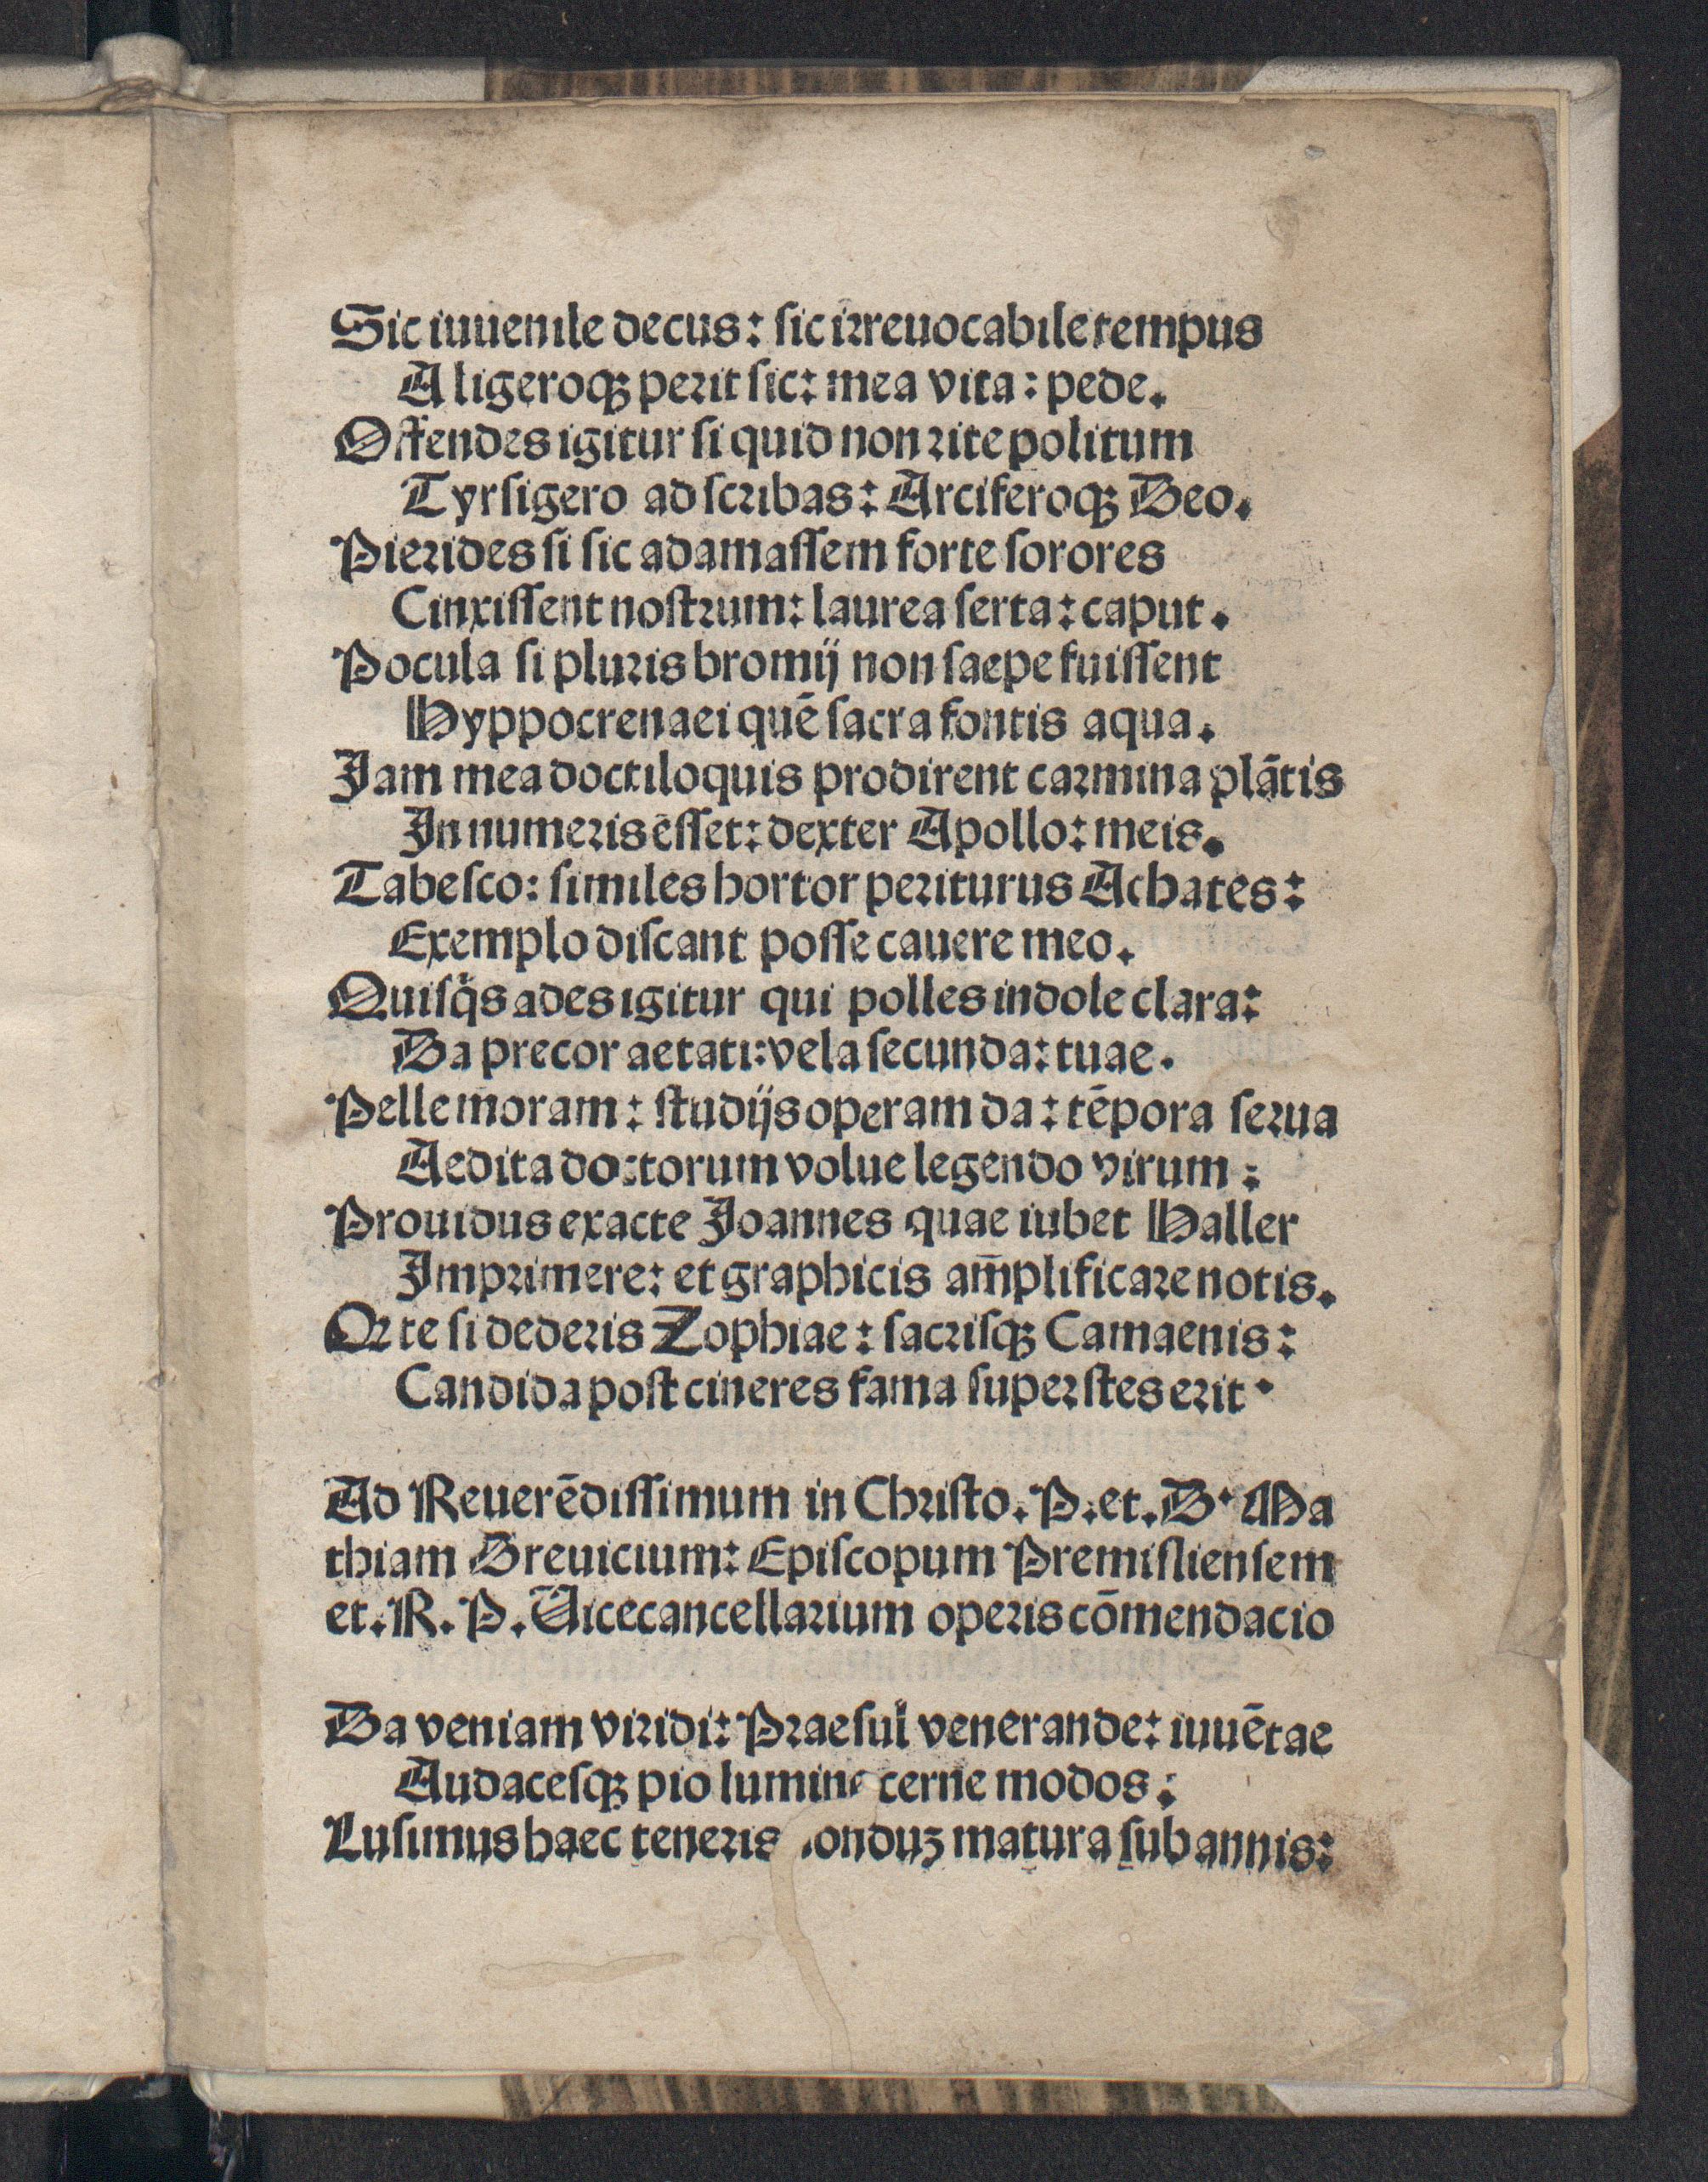 Sic iuuenile decus: sic irreuocabile tempus
Aligeroqꝫ perit sic: mea vita: pede.
Offendes igitur si quid non rite politum
Tyrsigero adscribas: Arciferoqꝫ Deo.
Pierides si sic adamassem forte sorores
Cinxissent nostrum: laurea serta: caput.
Pocula si pluris bromij non saepe fuissent
Hyppocrenaei quē sacra fontis aqua.
Jam mea doctiloquis prodirent carmina plātis
In numeris ēsset: dexter Apollo: meis.
Tabesco: similes hortor periturus Achates:
Exemplo discant posse cauere meo.
Quisq̇s ades igitur qui polles indole clara:
Da precor aetati: vela secunda: tuae.
Pelle moram: studijs operam da: tēpora serua
Aedita doctorum volue legendo virum:
Prouidus exacte Joannes quae iubet Haller
Imprimere: et graphicis am̄plificare notis.
Qr te si dederis Zophiae: sacrisqꝫ Camaenis:
Candida post cineres fama superstes erit.
Ad Reuerēdissimum in Christo. P. et. D. Ma
thiam Dreuicium: Episcopum Premisliensem
et. R. P. Vicecancellarium operis cōmendacio
Da veniam viridi: Praesul venerande: iuuētae
Audacesqꝫ pio lumine cerne modos:
Lusimus haec teneris nonduꝫ matura sub annis: